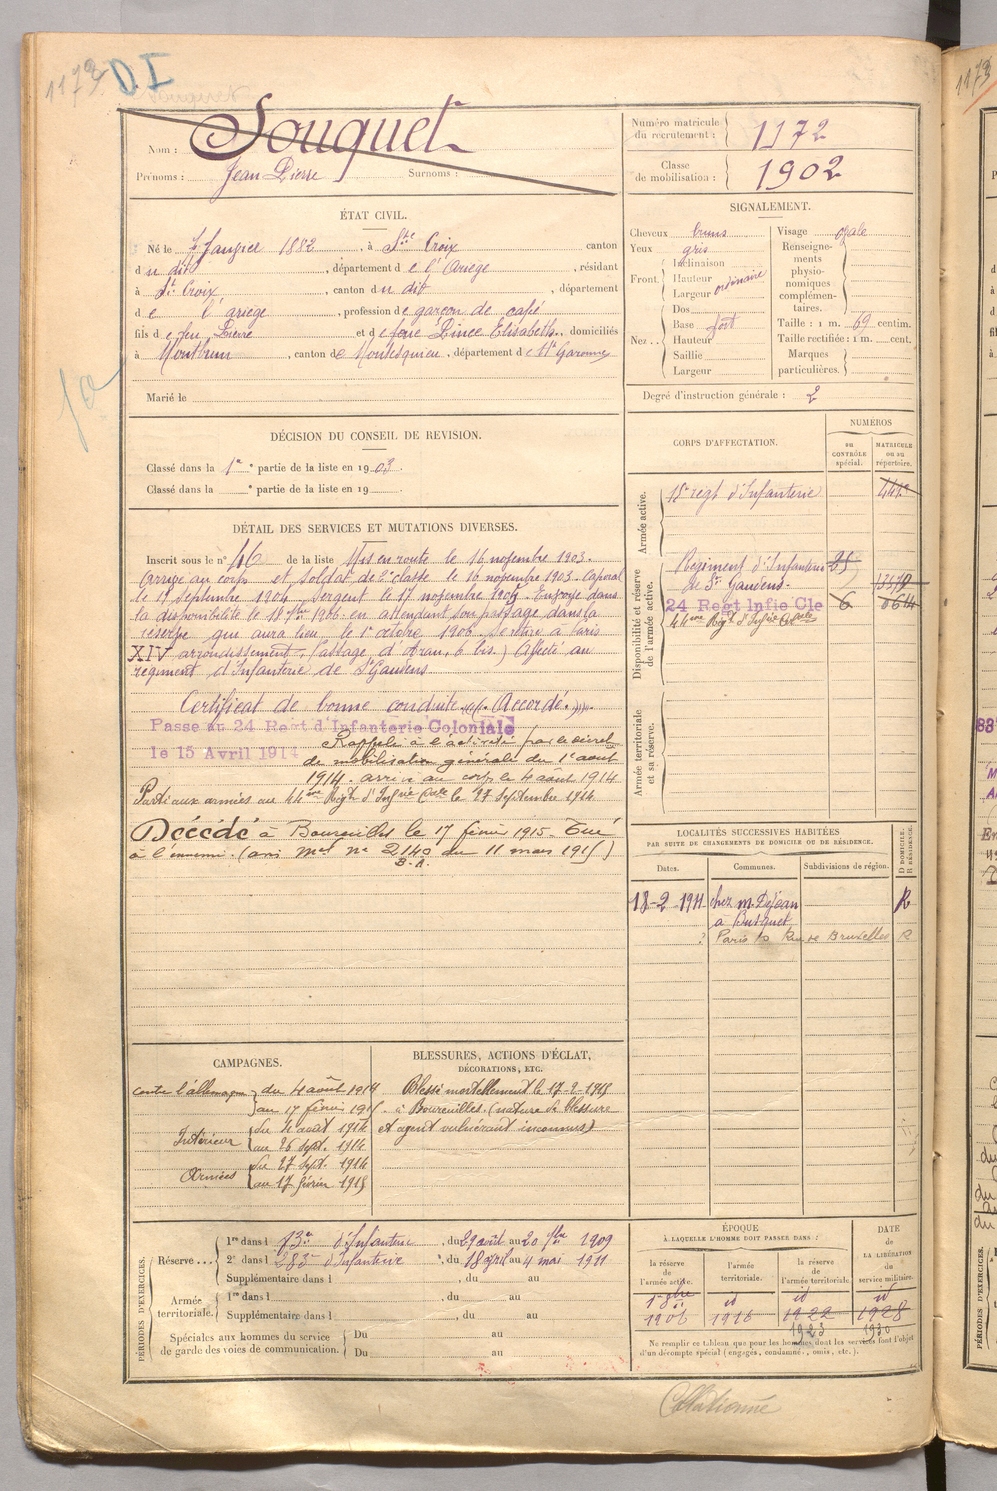 1173 D.I
Nom : Souquet
Prénoms : Jean Pierre Surnoms :
Numéro matricule du recrutement : 1172
Classe de mobilisation : 1902
ÉTAT CIVIL.
Né le 7 Janvier 1882, à Ste Croix canton
du dit, département de l'Ariège, résidant
à Ste Croix, canton du dit, département
de l'ariège, profession de garçon de café
fils de feu Pierre et de feue Lince Elisabeth, domiciliés
à Montbrun, canton de Montesquieu, département de Hte Garonne
Marié le
SIGNALEMENT.
Cheveux bruns
Yeux gris
Front Inclinaison
Hauteur ordinaire
Largeur
Nez Dos
Base fort
Hauteur
Saillie
Largeur
Visage ovale
Renseignements physionomiques complémentaires.
Taille : 1 m. 69 centim.
Taille rectifiée : 1 m. cent.
Marques particulières.
Degré d'instruction générale : 2
DÉCISION DU CONSEIL DE REVISION.
Classé dans la 1e partie de la liste en 1903.
Classé dans la e partie de la liste en 19
DÉTAIL DES SERVICES ET MUTATIONS DIVERSES.
Inscrit sous le n° 46 de la liste Mis en route le 16 novembre 1903.
Arrivé au corps et soldat de 2e classe le 16 novembre 1903. Caporal
le 17 Septembre 1904 Sergent le 17 novembre 1905. Envoyé dans
la disponibilité le 18 7bre 1906 en attendant son passage dans la
réserve qui aura lieu le 1er octobre 1906. Se retire à Paris
XIV arrondissement, (passage d'Aran, 6 bis.) Affecté au
régiment d'Infanterie de St Gaudens
Certificat de bonne conduite "(Accordé.)"
Passé au 24 Regt d'Infanterie Coloniale
le 15 Avril 1914
Rappelé à l'activité par le décret
de mobilisation générale du 1er août
1914. arrivé au corps le 4 août 1914
Parti aux armées au 44me Régt d'Infrie Cale le 27 Septembre 1914
Décédé à Boureuilles le 17 février 1915. Tué
à l'ennemi. (avis mel n° 2140 du 11 mars 1915)
B.A.
CORPS D'AFFECTATION.
NUMÉROS
au CONTRÔLE spécial.
MATRICULE ou au répertoire.
Armée active.
18e regt d'Infanterie
Disponibilité et réserve de l'armée active.
Régiment d'Infanterie
de St Gaudens.
24 Regt Infie Cle 6
44me Régt d'Infrie Cale
Armée territoriale et sa réserve.
LOCALITÉS SUCCESSIVES HABITÉES
PAR SUITE DE CHANGEMENTS DE DOMICILE OU DE RÉSIDENCE.
Dates. Communes. Subdivisions de région. D DOMICILE. R RÉSIDENCE.
18-2-1911 chez m. Dejean R
a Busquet
? Paris Rue de Bruxelles R
CAMPAGNES.
contre l'allemagne du 4 août 1914
au 17 février 1915
Intérieur du 4 août 1914
au 26 sept. 1914
Armées du 27 sept. 1914
au 17 février 1915
BLESSURES, ACTIONS D'ÉCLAT,
DÉCORATIONS, ETC.
Blessé mortellement le 17-2-1915
à Boureuilles. (nature de blessure
et agent vulnérant inconnus)
PÉRIODES D'EXERCICES.
Réserve 1re dans l 83e d'Infanterie, du 29 août au 20 7bre 1909
2e dans l 283e d'Infanterie, du 18 avril au 4 mai 1911
Supplémentaire dans l , du au
Armée territoriale. 1re dans l , du au
Supplémentaire dans l , du au
Spéciales aux hommes du service de garde des voies de communication. Du au
Du au
ÉPOQUE
À LAQUELLE L'HOMME DOIT PASSER DANS :
DATE DE LA LIBÉRATION du service militaire.
la réserve de l'armée active.
l'armée territoriale.
la réserve de l'armée territoriale.
1er 8bre id id id
1906 1916 1922 1928
1923 1930
Ne remplir ce tableau que pour les hommes dont les services font l'objet
d'un décompte spécial (engagés, condamnés, omis, etc.).
Collationné